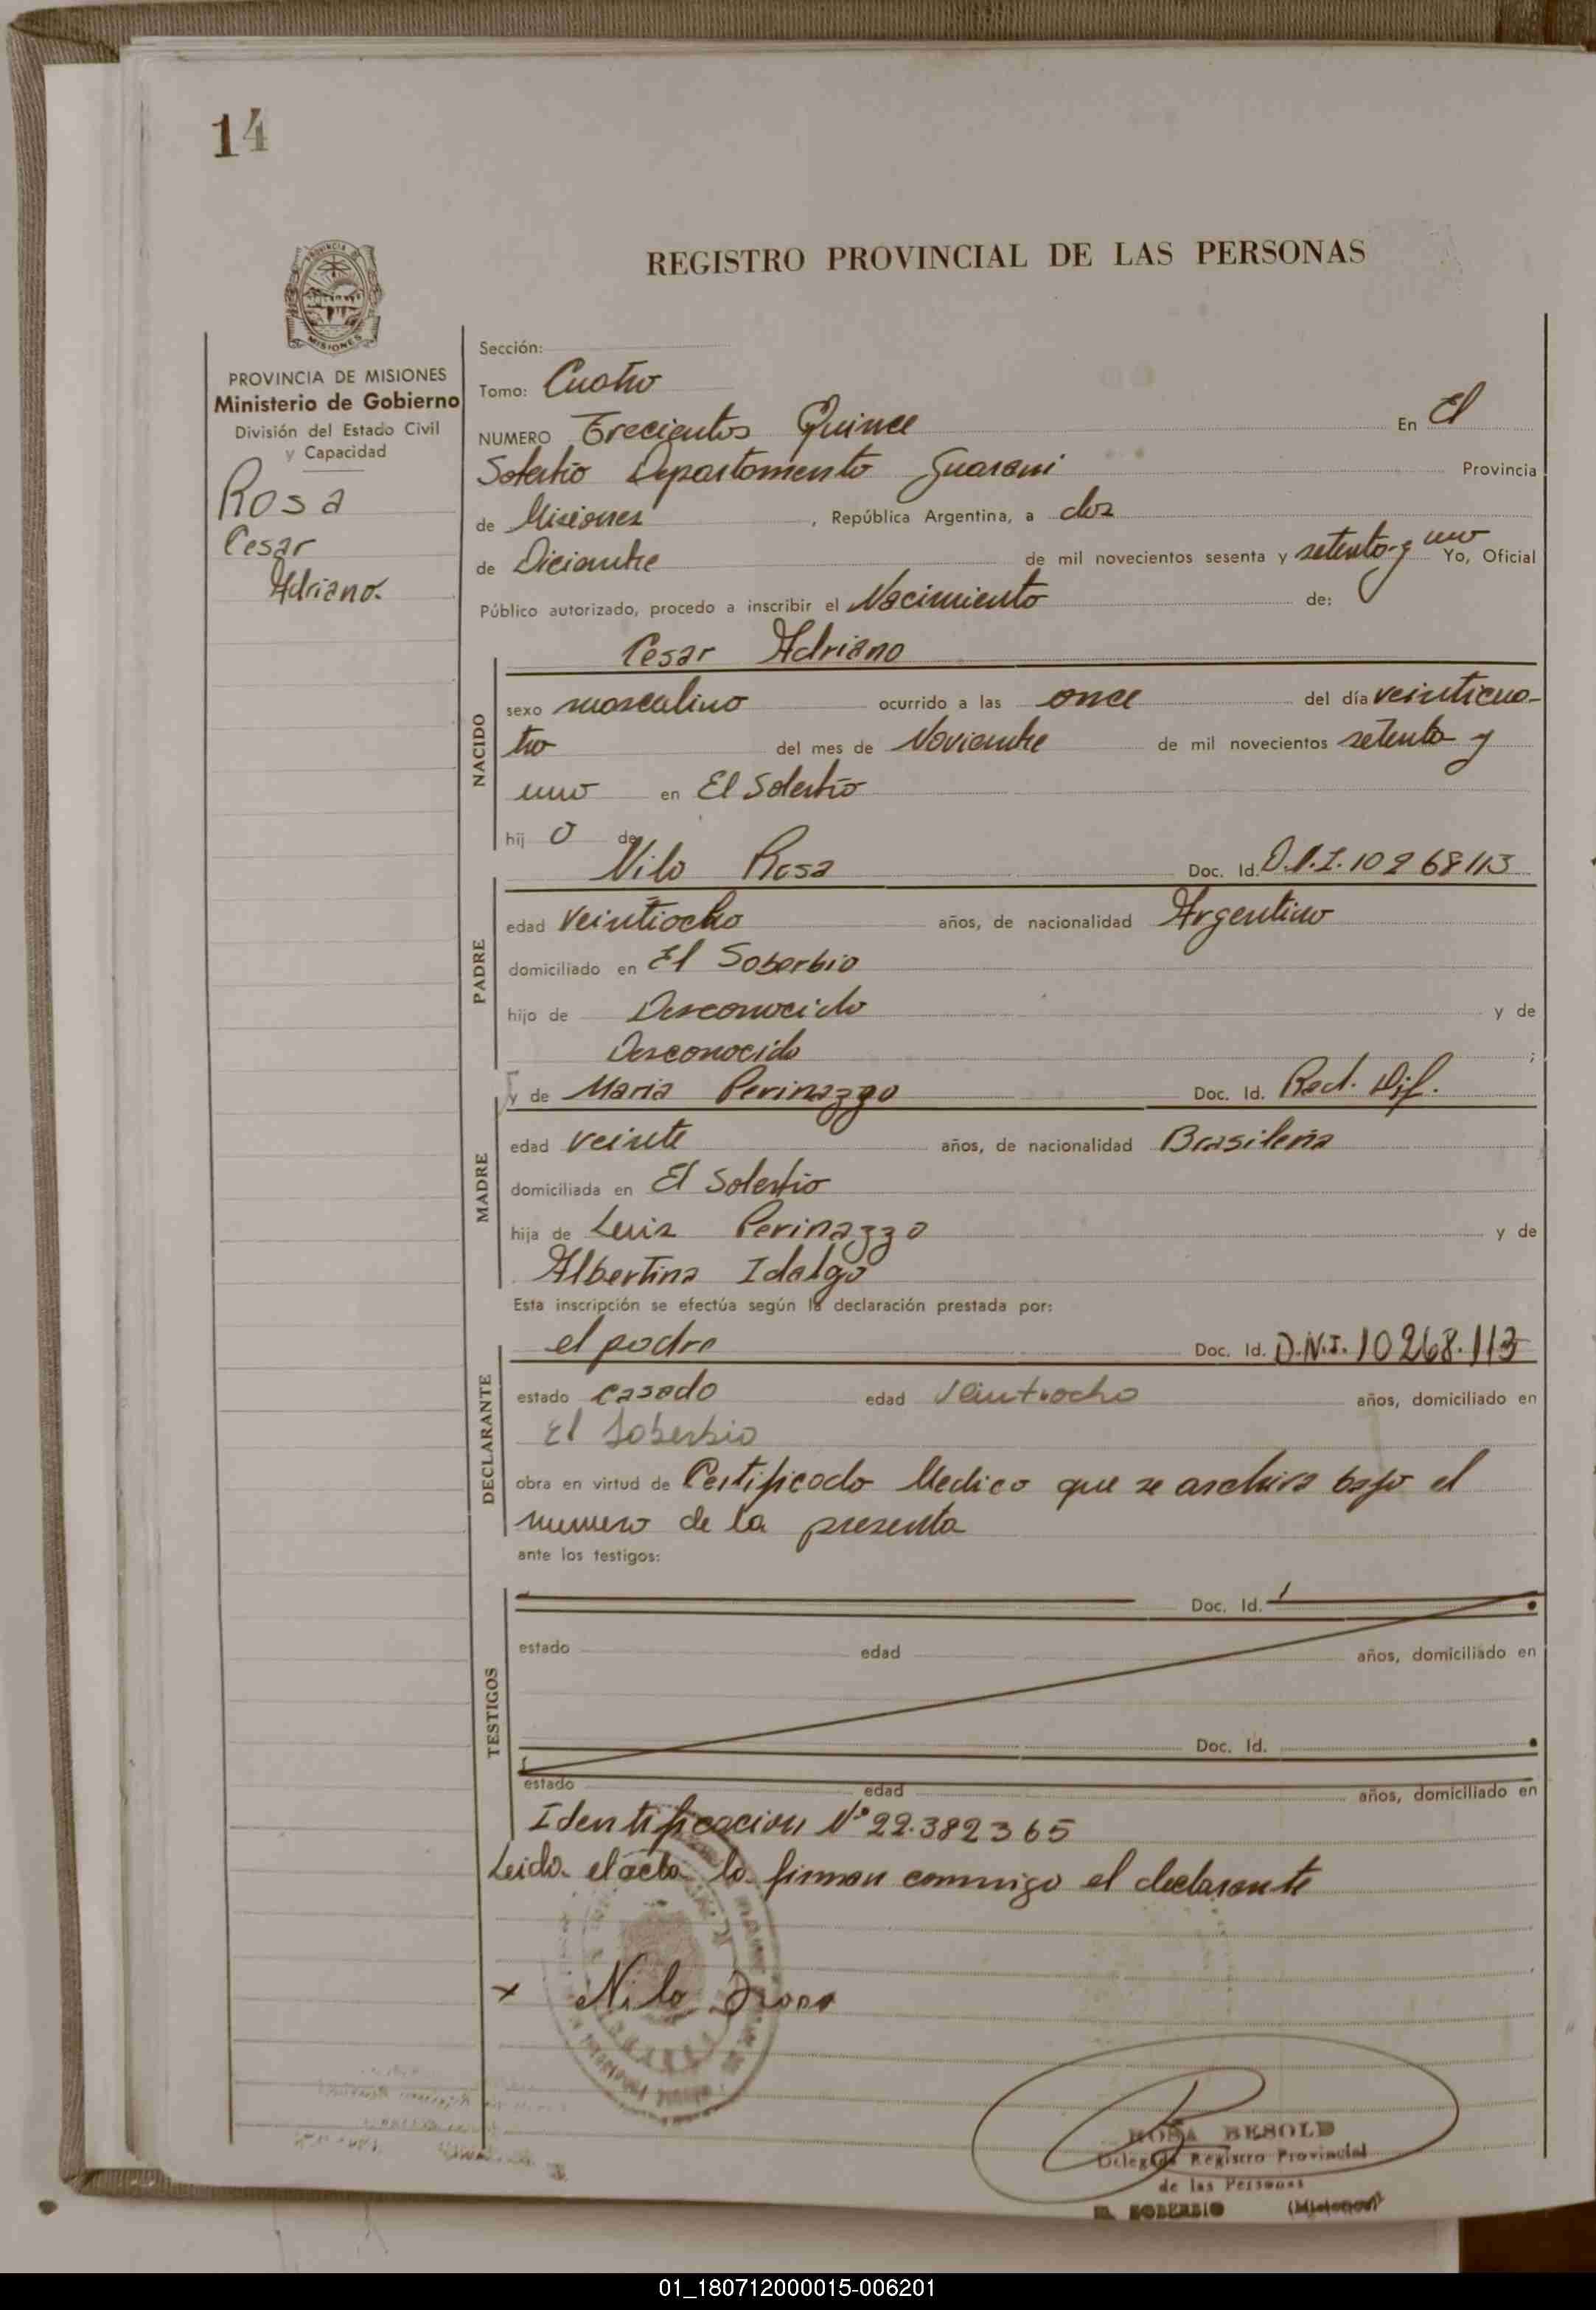 14
REGISTRO PROVINCIAL DE LAS PERSONAS
MISIONES
PROVINCIA DE MISIONES
Ministerio de Gobierno
División del Estado Civil
y Capacidad
Rosa
Cesar
Adriano.
Sección:
Tomo: Cuatro
NUMERO Trecientos Quince En El
Soberbio Departamento Guarani Provincia
de Misiones, República Argentina, a dos
de Diciembre de mil novecientos sesenta y setenta y uno Yo, Oficial
Público autorizado, procedo a inscribir el Nacimiento de:
NACIDO
Cesar Adriano
sexo masculino ocurrido a las once del día veinticua-
tro del mes de Noviembre de mil novecientos setenta y
uno en El Soberbio
hij o de
PADRE
Nilo Rosa Doc. Id. D.N.I. 10268113
edad veintiocho años, de nacionalidad Argentino
domiciliado en El Soberbio
hijo de Desconocido y de
Desconocido ;
MADRE
y de Maria Perinazzo Doc. Id. Rad. Dif.
edad veinte años, de nacionalidad Brasileña
domiciliada en El Soberbio
hija de Luis Perinazzo y de
Albertina Idalgo
Esta inscripción se efectúa según la declaración prestada por:
DECLARANTE
el padre Doc. Id. D.N.I. 10268.113
estado casado edad Veintiocho años, domiciliado en
El Soberbio
obra en virtud de Certificado Medico que se archiva bajo el
numero de la presenta
ante los testigos:
TESTIGOS
Doc. Id.
estado edad años, domiciliado en
Doc. Id.
estado edad años, domiciliado en
Identificacion Nº 22.382365
Leida el acta la firman conmigo el declarante
x Nilo Rosa
ROSA BESOLD
Delegada Registro Provincial
de las Personas
EL SOBERBIO (Misiones)
01_180712000015-006201